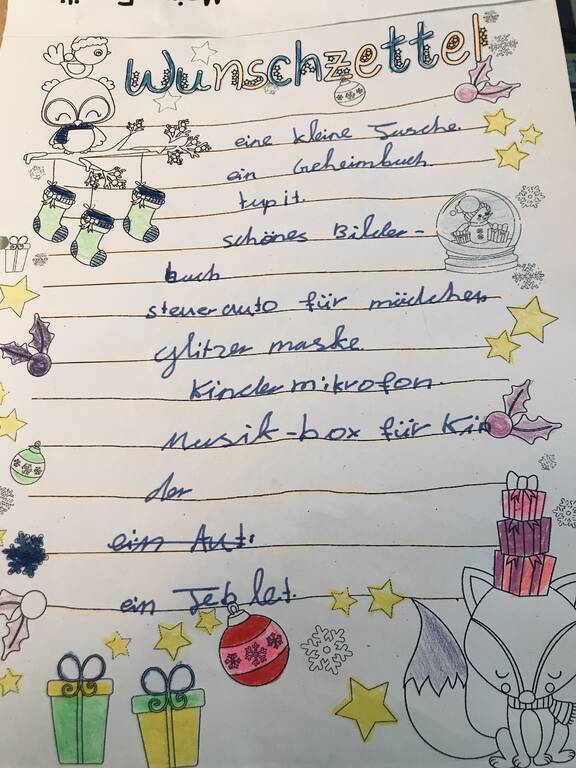 Wunschzettel
eine kleine Tasche.
ein Geheimbuch
tup it.
schönes Bilder-
buch
steuerauto für mädchen
Glitzer maske.
Kindermikrofon.
Musik-box für Kin
der
ein Aut.
ein Teblet.